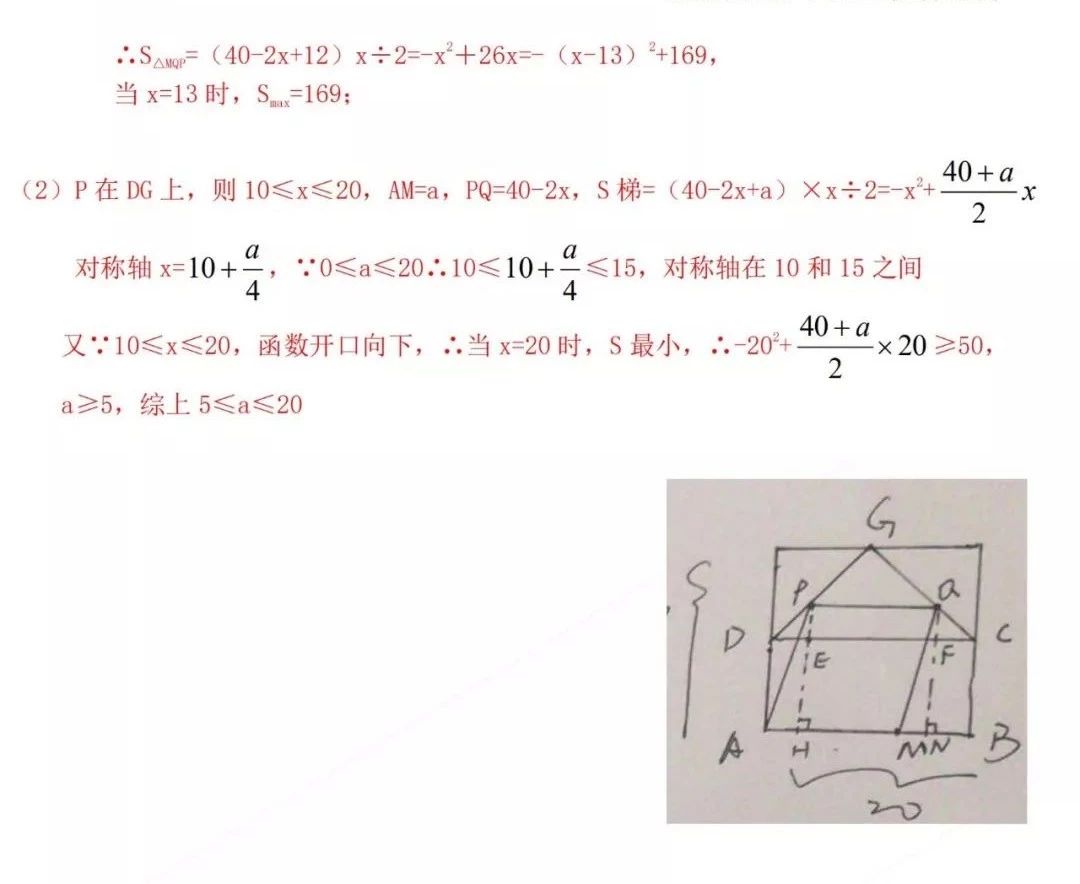 ∴S△MQP=（40-2x+12）x÷2=-x²+26x=-（x-13）²+169，
当 x=13 时，Smax=169；
（2）P 在 DG 上，则 10≤x≤20，AM=a，PQ=40-2x，S 梯=（40-2x+a）×x÷2=-x²+(40+a)/2 x
对称轴 x=10+a/4，∵0≤a≤20∴10≤10+a/4≤15，对称轴在 10 和 15 之间
又∵10≤x≤20，函数开口向下，∴当 x=20 时，S 最小，∴-20²+(40+a)/2×20≥50，
a≥5，综上 5≤a≤20
G
P Q
D E F C
A H M N B
20